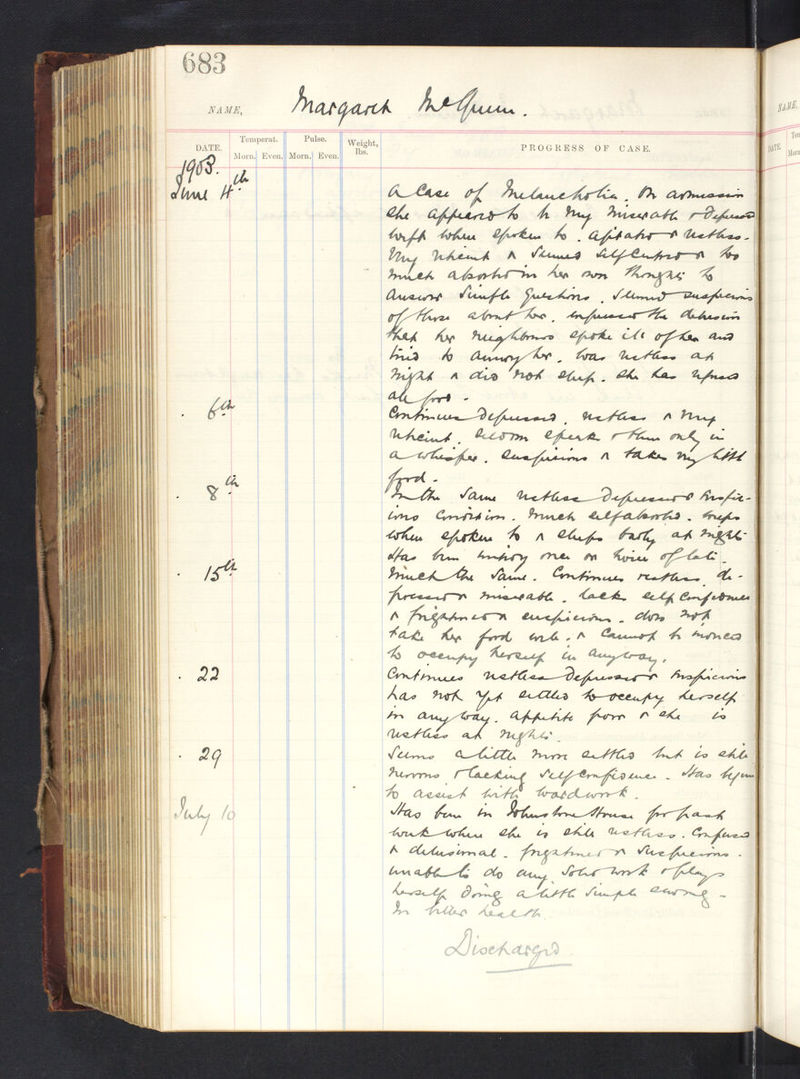 683
NAME, Margaret McGuinn.
DATE. Temperat. Pulse. Weight, lbs. PROGRESS OF CASE.
Morn. Even. Morn. Even.
1903.
June 4th A Case of Melancholia. On admission
she appeared to be very miserable & depressed
wept when spoken to. agitated & restless.
Very reticent & seemed self centred & too
much absorbed in her own thoughts to
answer simple questions. Seemed suspicious
of those about her. expressed the delusion
that her neighbours spoke ill of her and
tried to annoy her. was restless at
night & did not sleep. She has refused
all food.
. 6th Continues depressed, restless & very
reticent. seldom speaks & then only in
a whisper. suspicious & takes very little
food.
. 8th In the same restless depressed & suspic-
ious condition. Much self absorbed. weeps
when spoken to & sleeps badly at night.
Has been once or twice of late.
. 15th Much the same. Continues restless, de-
pressed & miserable. lacks self confidence
& frightened & suspicious. does not
take her food well. & cannot be induced
to occupy herself in anyway.
. 22 Continues restless depressed & suspicious
has not yet settled to occupy herself
in anyway. appetite poor & she is
restless at nights.
. 29 Seems a little more settled but is still
nervous & lacking self confidence. Has begun
to assist with wardwork.
July 10 Has been in Johnstone House for past
week where she is still restless. Confused
& delusional. frightened & suspicious.
unable to do any work &
herself doing a little simple sewing.
In better health
Discharged
NAME,
DATE.
Morn